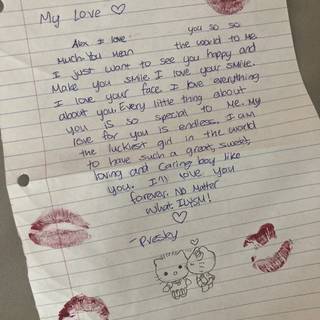 My Love ♡
Alex I love you so so
much. You mean the world to me.
I just want to see you happy and
Make you smile I love your smile.
I love your face I love everything
about you. Every little thing about
you is so special to me. My
love for you is endless. I am
the luckiest girl in the world
to have such a great, sweet,
loving and caring boy like
you. I'll love you
forever. No Matter
What. ILYSM!
♡
-Presley